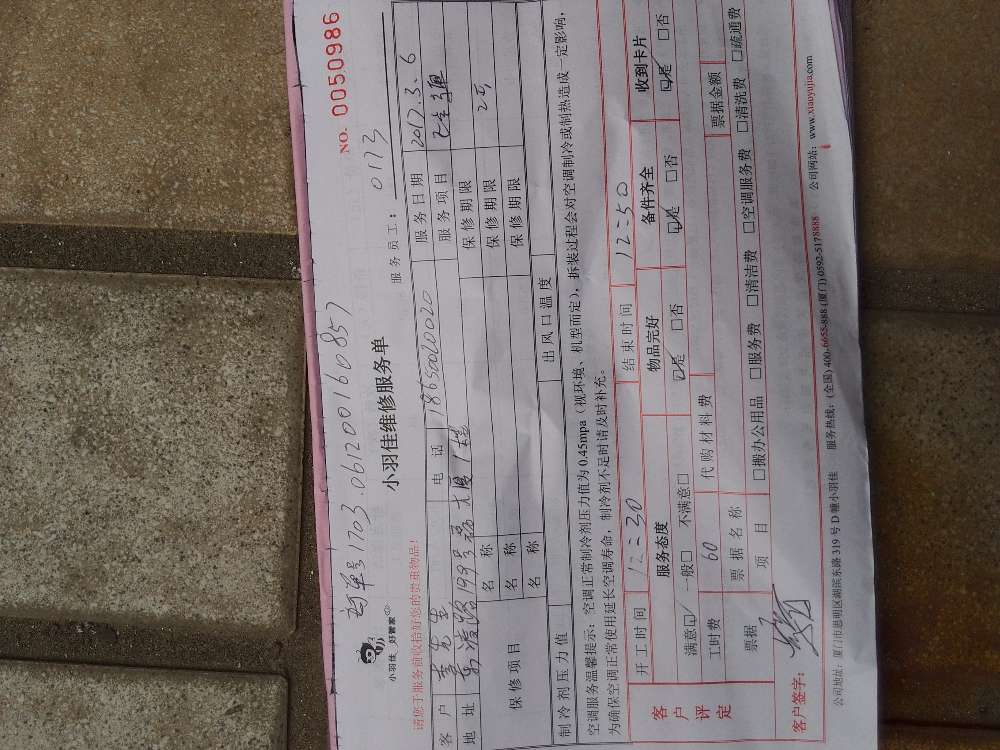 NO. 0050986
1703.0612001608 57
小羽佳 好管家
小羽佳维修服务单
服务员工： 0173
请您于服务前收拾好您的贵重物品！
客户 李先生 电话 18650020020 服务日期 2017.3.6
地址 199号 大厦1楼 服务项目
保修项目 名称 保修期限
名称 保修期限
名称 保修期限
制冷剂压力值 出风口温度
空调服务温馨提示：空调正常制冷剂压力值为0.45mpa（视环境、机型而定），拆装过程会对空调制冷或制热造成一定影响，
为确保空调正常使用延长空调寿命，制冷剂不足时请及时补充。
客户评定 开工时间 12=30 结束时间 12=50
服务态度 物品完好 备件齐全 收到卡片
满意☑ 一般□ 不满意□ ☑是 □否 ☑是 □否 ☑是 □否
工时费 60 代购材料费
票据 票据名称 票据金额
项目 □搬办公用品 □服务费 □清洁费 □空调服务费 □清洗费 □疏通费
客户签字：
公司地址：厦门市思明区湖滨东路319号D幢小羽佳 服务热线：(全国) 400-6655-888 (厦门) 0592-5178888 公司网站：www.xiaoyujia.com